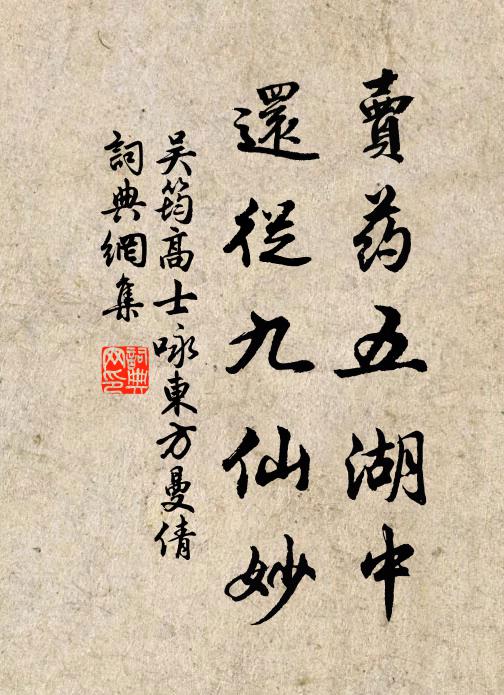 賣药五湖中
還從九仙妙
吴筠高士咏東方曼倩
詞典網集
詞典网印